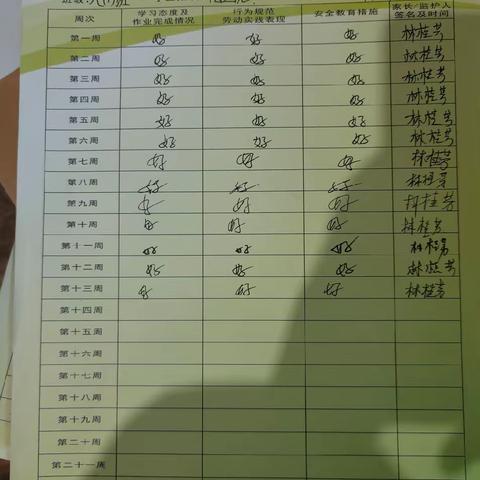 周次 学习态度及作业完成情况 行为规范劳动实践表现 安全教育措施 家长/监护人签名及时间
第一周 好 好 好 林桂芳
第二周 好 好 好 林桂芳
第三周 好 好 好 林桂芳
第四周 好 好 好 林桂芳
第五周 好 好 好 林桂芳
第六周 好 好 好 林桂芳
第七周 好 好 好 林桂芳
第八周 好 好 好 林桂芳
第九周 好 好 好 林桂芳
第十周 好 好 好 林桂芳
第十一周 好 好 好 林桂芳
第十二周 好 好 好 林桂芳
第十三周 好 好 好 林桂芳
第十四周
第十五周
第十六周
第十七周
第十八周
第十九周
第二十周
第二十一周